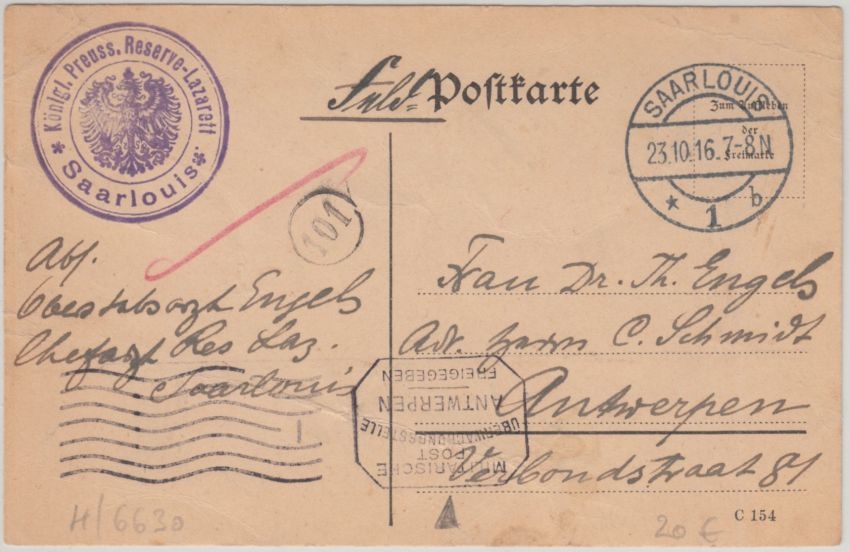 Königl. Preuss. Reserve-Lazarett
* Saarlouis *
Feld- Postkarte
SAARLOUIS
23.10.16.7-8N
* 1 b
Zum Aufkleben
der
Freimarke
101
Abs.
Oberstabsarzt Engels
Chefarzt Res Laz.
Saarlouis
Frau Dr. Th. Engels
Adr. Herrn C. Schmidt
Antwerpen
Verbondstraat 81
MILITÄRISCHE
POST
ÜBERWACHUNGSSTELLE
ANTWERPEN
FREIGEGEBEN
H/6630
20 €
C 154